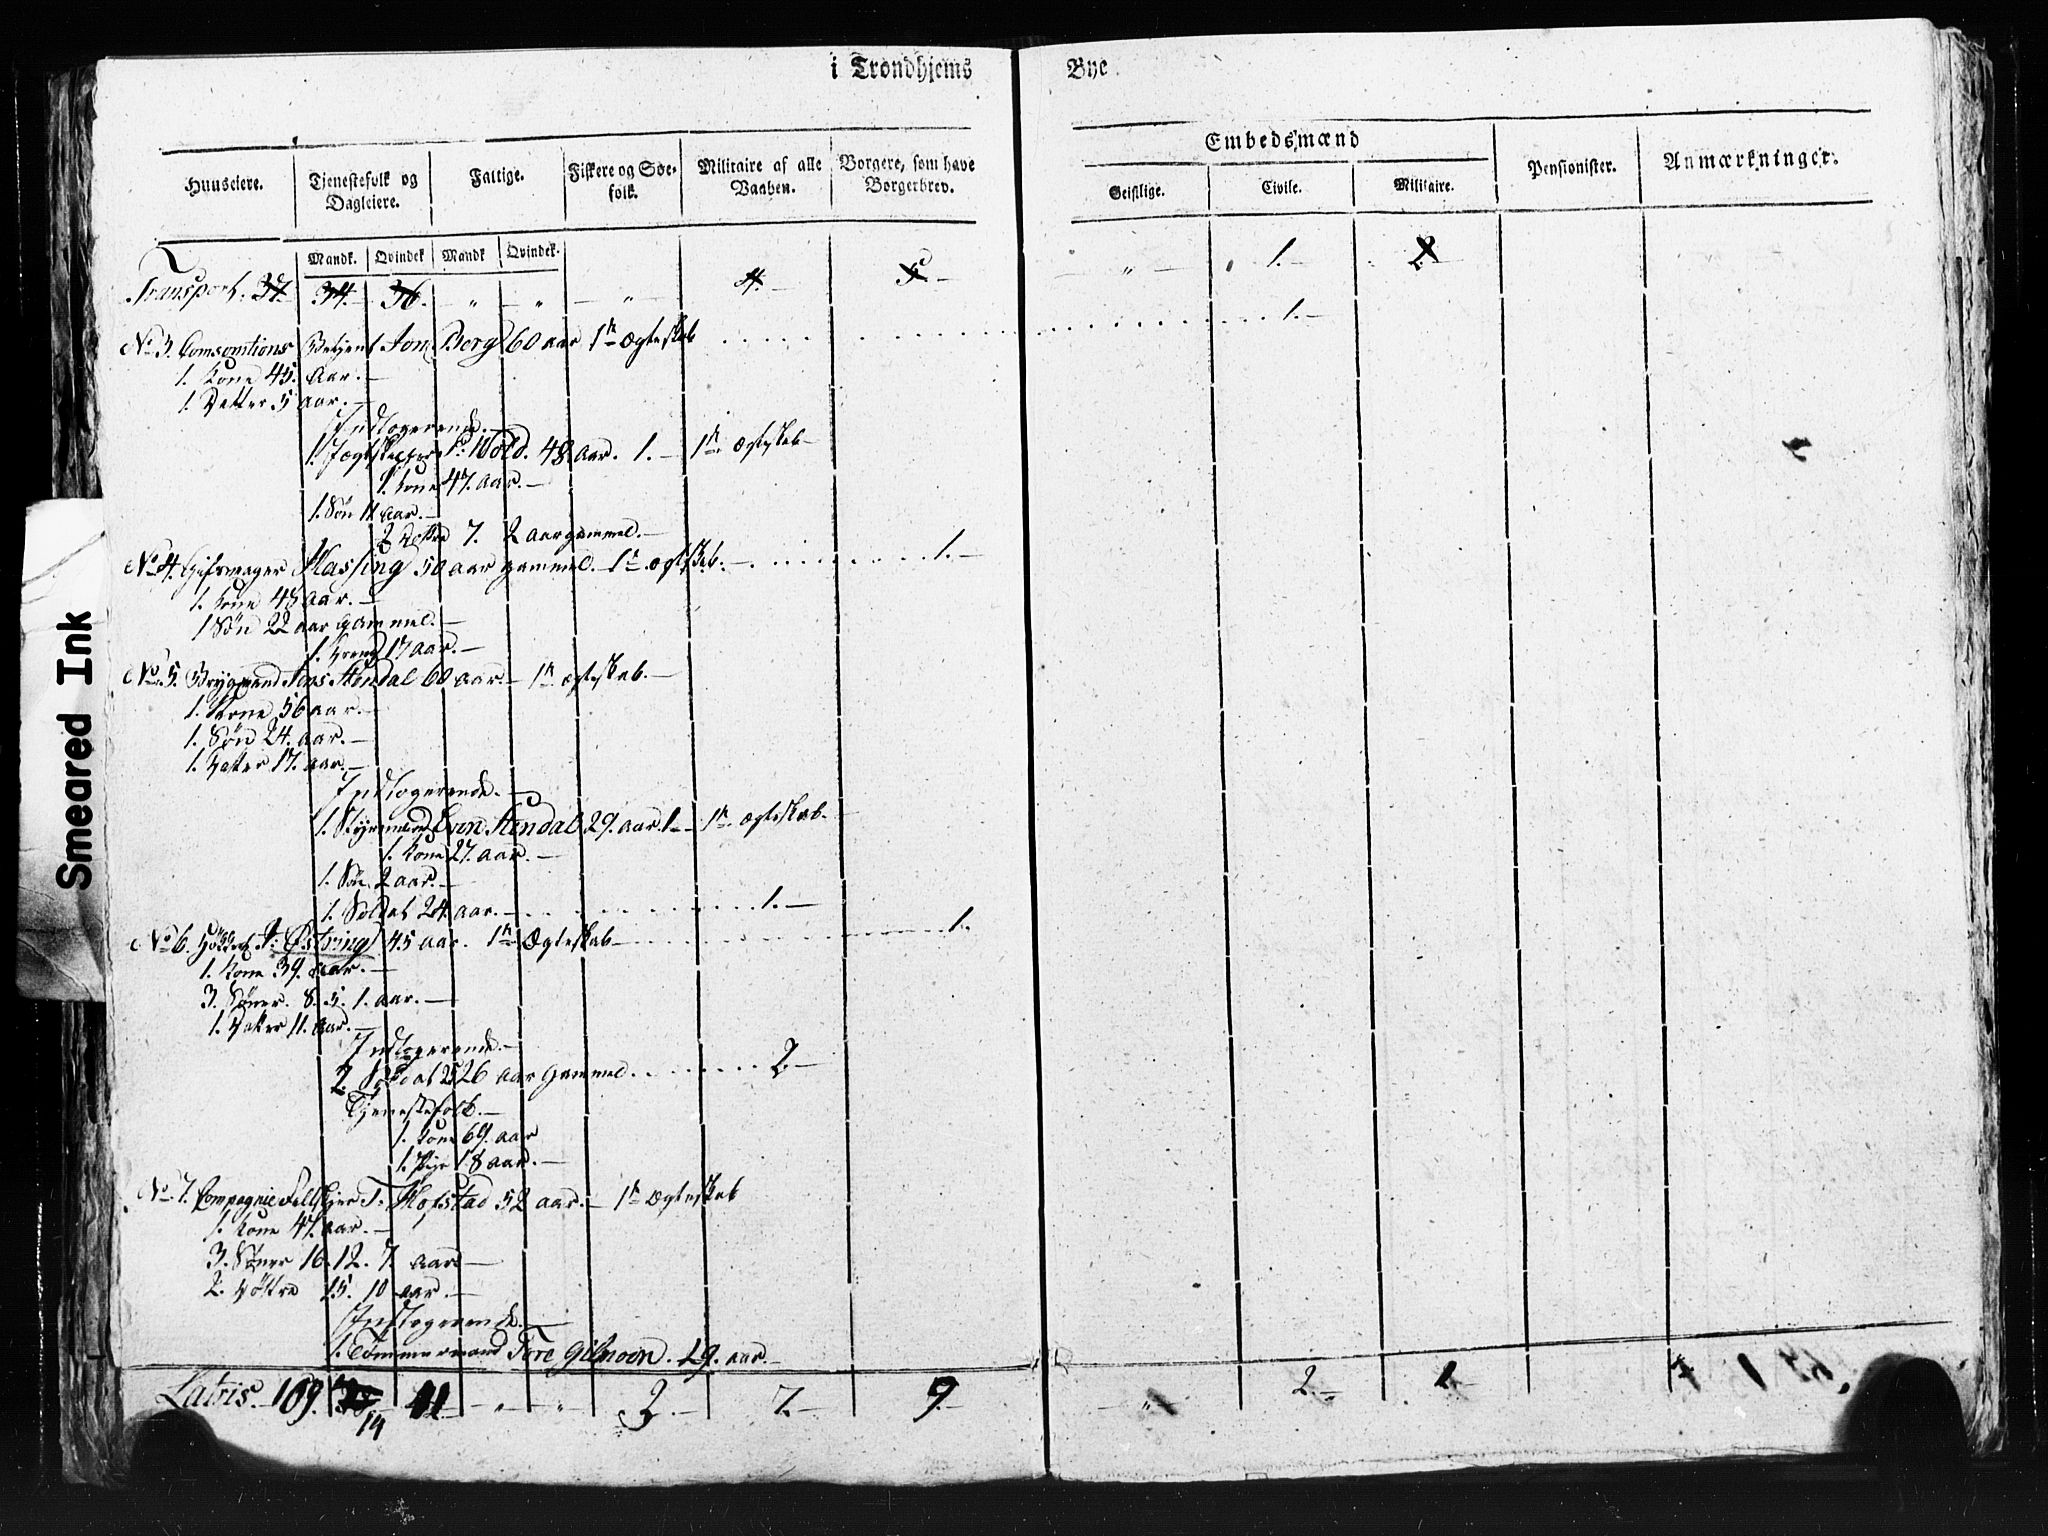 i Trondhjems Bye
Huuseiere. Tjenestefolk og Dagleiere. Fattige. Fiskere og Søefolk. Militaire af alle Vaaben. Borgere, som have Borgerbrev. Embedsmænd Geistlige. Civile. Militaire. Pensionister. Anmærkninger.
Mandk. Qvindek Mandk Qvindek.
Transport. 37. 34. 36. " " " 4. 5 " 1. 2
No 3. Comsomtions Betjent Jon Berg 60 aar 1te Ægteskab 1.
1. Kone 45. Aar.
1. Datter 5 aar.
Indlogerende.
1. Jægtskipper P: Wold. 48 aar. 1. 1te Ægteskab
1. Kone 47. aar.
1. Søn 11 aar.
2 Døttre 7. 2 aar gammel.
No 4. Hassing 50 aar gammel. 1te ægteskab. 1.
1. Kone 48 aar.
1 Søn 22 aar gammel.
1. Dreng 17 aar.
No 5. Brygmand Jens Stendal 60 aar. 1te ægteskab.
1. Kone 56 aar.
1. Søn 24. aar.
1. Datter 17. aar.
Indlogerende.
1. Styrmand Even Stendal 29. aar. 1. 1te ægteskab.
1. Kone 27. aar.
1. Søn. 2 aar.
1. Soldat 24. aar. 1.
No 6. J: Østring 45 aar. 1te Ægteskab 1.
1. Kone 39. aar.
3. Sønner. 8. 5. 1. aar.
1. Datter 11. aar.
Indlogerende.
2. Soldat 25 26 aar gammel. 2
Tjenestefolk.
1. Kone 69. aar
1. Pige 18 aar.
No 7. Compagnie Feltskjer T. Hofstad 52 aar. 1te Ægteskab
1. Kone 47. aar.
3. Sønner 16. 12. 7. aar
2. Døttre 15. 10 aar.
Indlogerende.
1. Tømmermand Tore 29. aar.
Latris. 109. 14 41 " " 2. 7. 9. " 2. 1
Smeared Ink